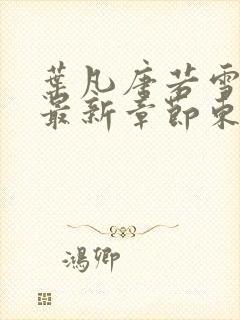 葉凡唐若雪
最新章節來
鴻卿